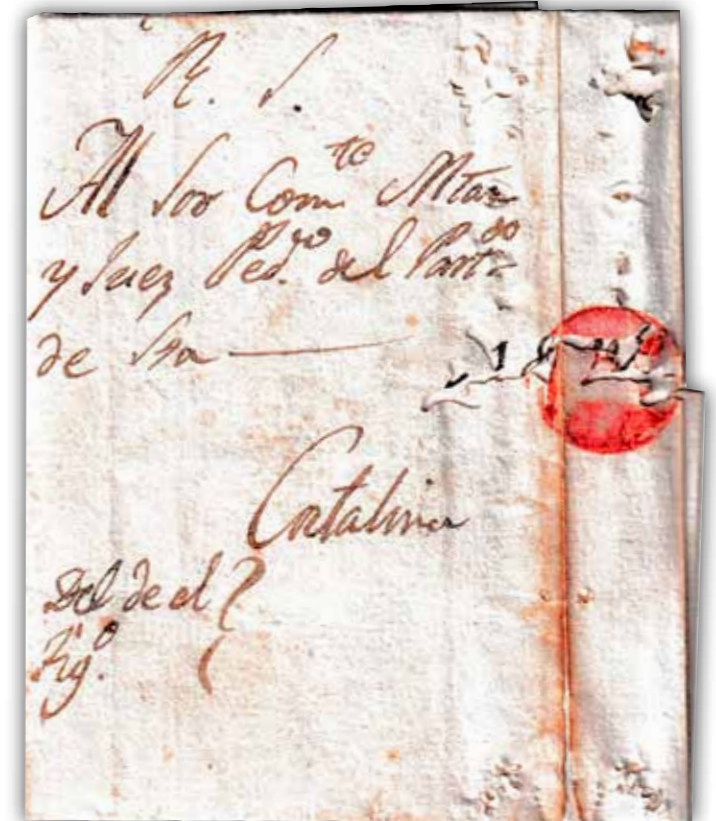 R. S.
Al Sor Comte Mtar
y Juez Pedro del Partdo
de Sta
Catalina
Del de el
Tigo.